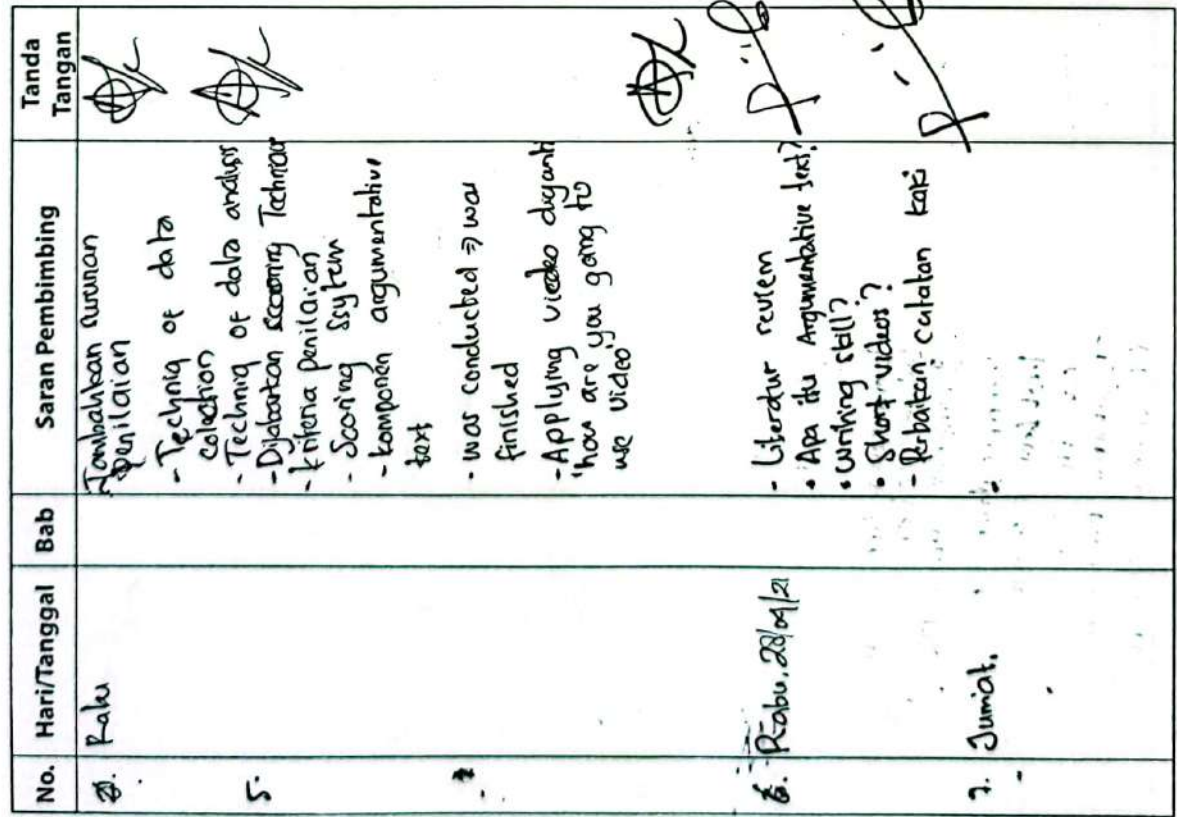 No. Hari/Tanggal Bab Saran Pembimbing Tanda Tangan
Rabu
Tambahkan
penilaian
- Techniq of data
colection
5.
- Techniq of data analysis
- Dijabarkan scooring Technique
- kriteria penilaian
- Scoring Ssytem
- komponen argumentative
text
- was conducted => was
finished
- Applying video diganti
"how are you going to
use video"
6. Rabu, 28/04/21
- Literatur review
• Apa itu Argumentative text?
• writing skill?
• Short videos?
- Perbaikan catatan kaki
7. Jumat.